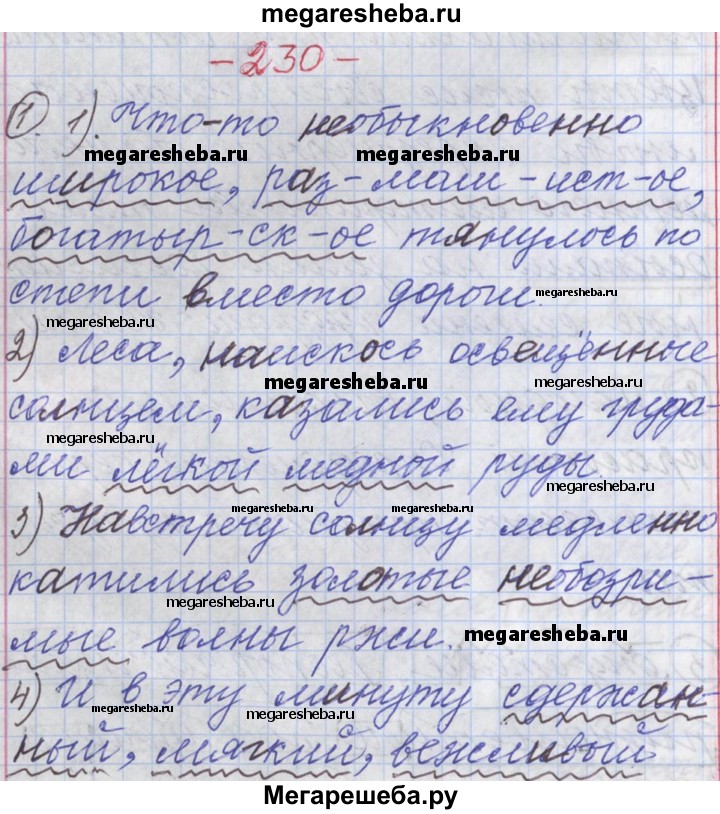 megaresheba.ru
- 230 -
1. 1). Что-то необыкновенно
megaresheba.ru megaresheba.ru
широкое, раз-маш-ист-ое,
богатыр-ск-ое тянулось по
степи вместо дороги.
megaresheba.ru
megaresheba.ru
2) Леса, наискось освещённые
megaresheba.ru megaresheba.ru
солнцем, казались ему груда-
ми лёгкой медной руды.
megaresheba.ru
megaresheba.ru megaresheba.ru
3) Навстречу солнцу медленно
катились золотые необозри-
megaresheba.ru
мые волны ржи.
megaresheba.ru
4) И в эту минуту сдержан-
megaresheba.ru megaresheba.ru
ный, мягкий, вежливый
Мегарешеба.ру